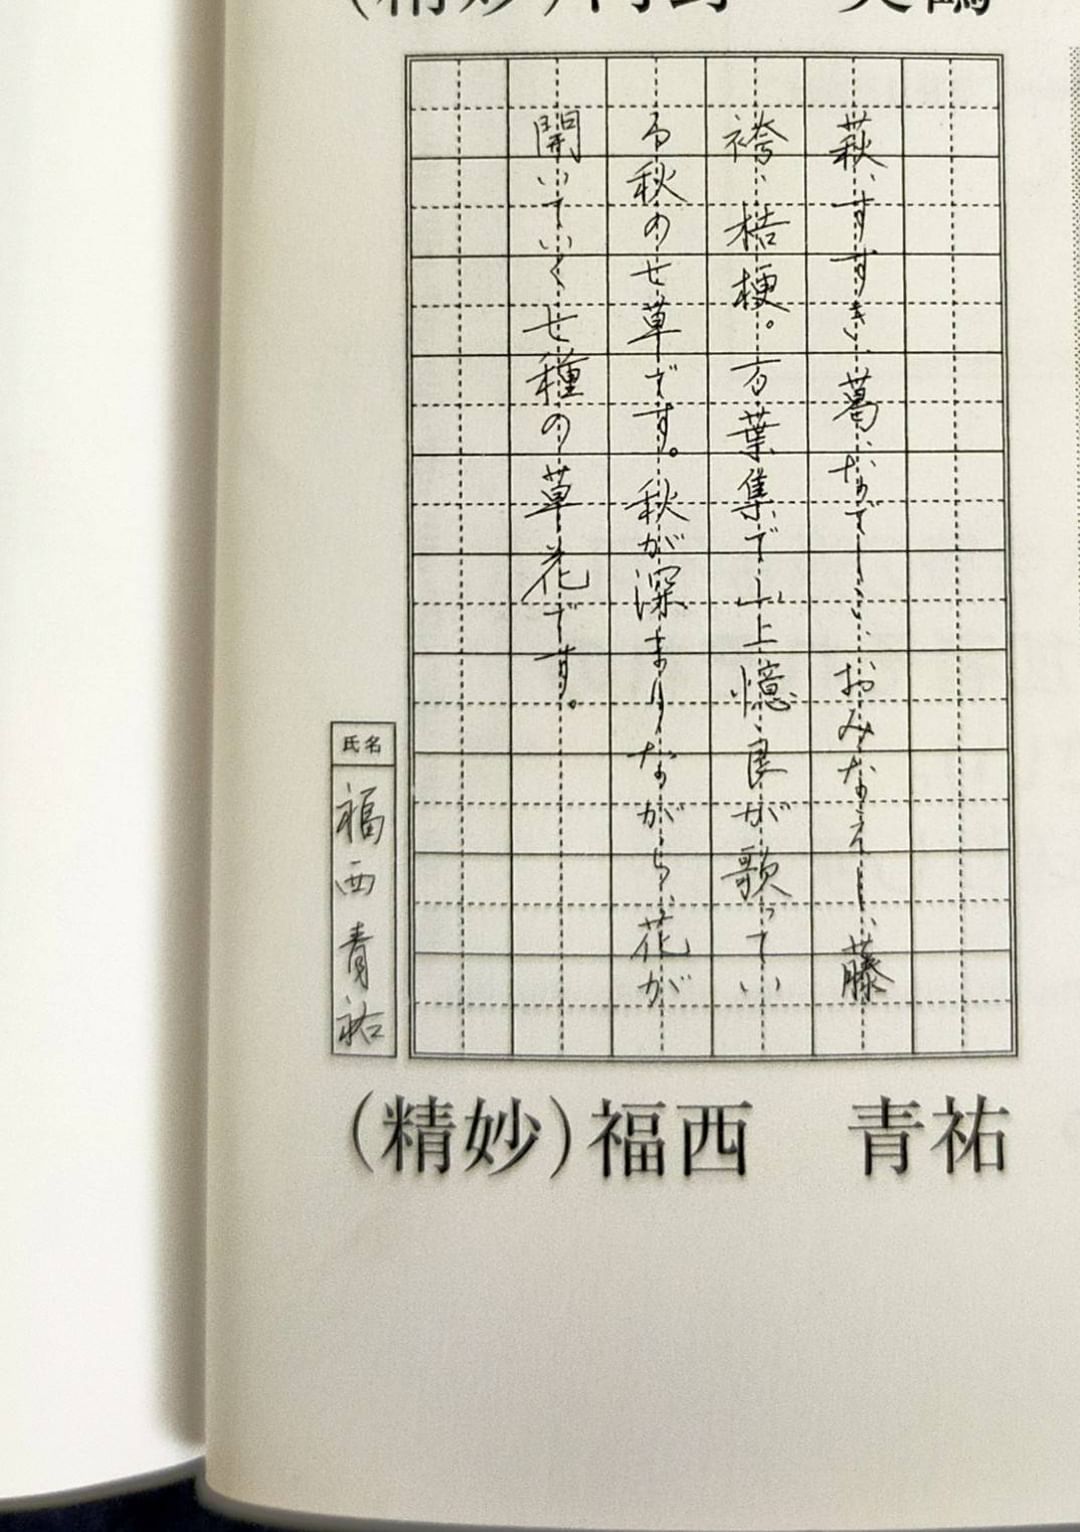 萩、すすき、葛、なでしこ、おみなえし、藤
袴、桔梗。万葉集で山上憶良が歌ってい
る秋の七草です。秋が深まりながら、花が
開いていく七種の草花です。
氏名
福西青祐
(精妙)福西 青祐